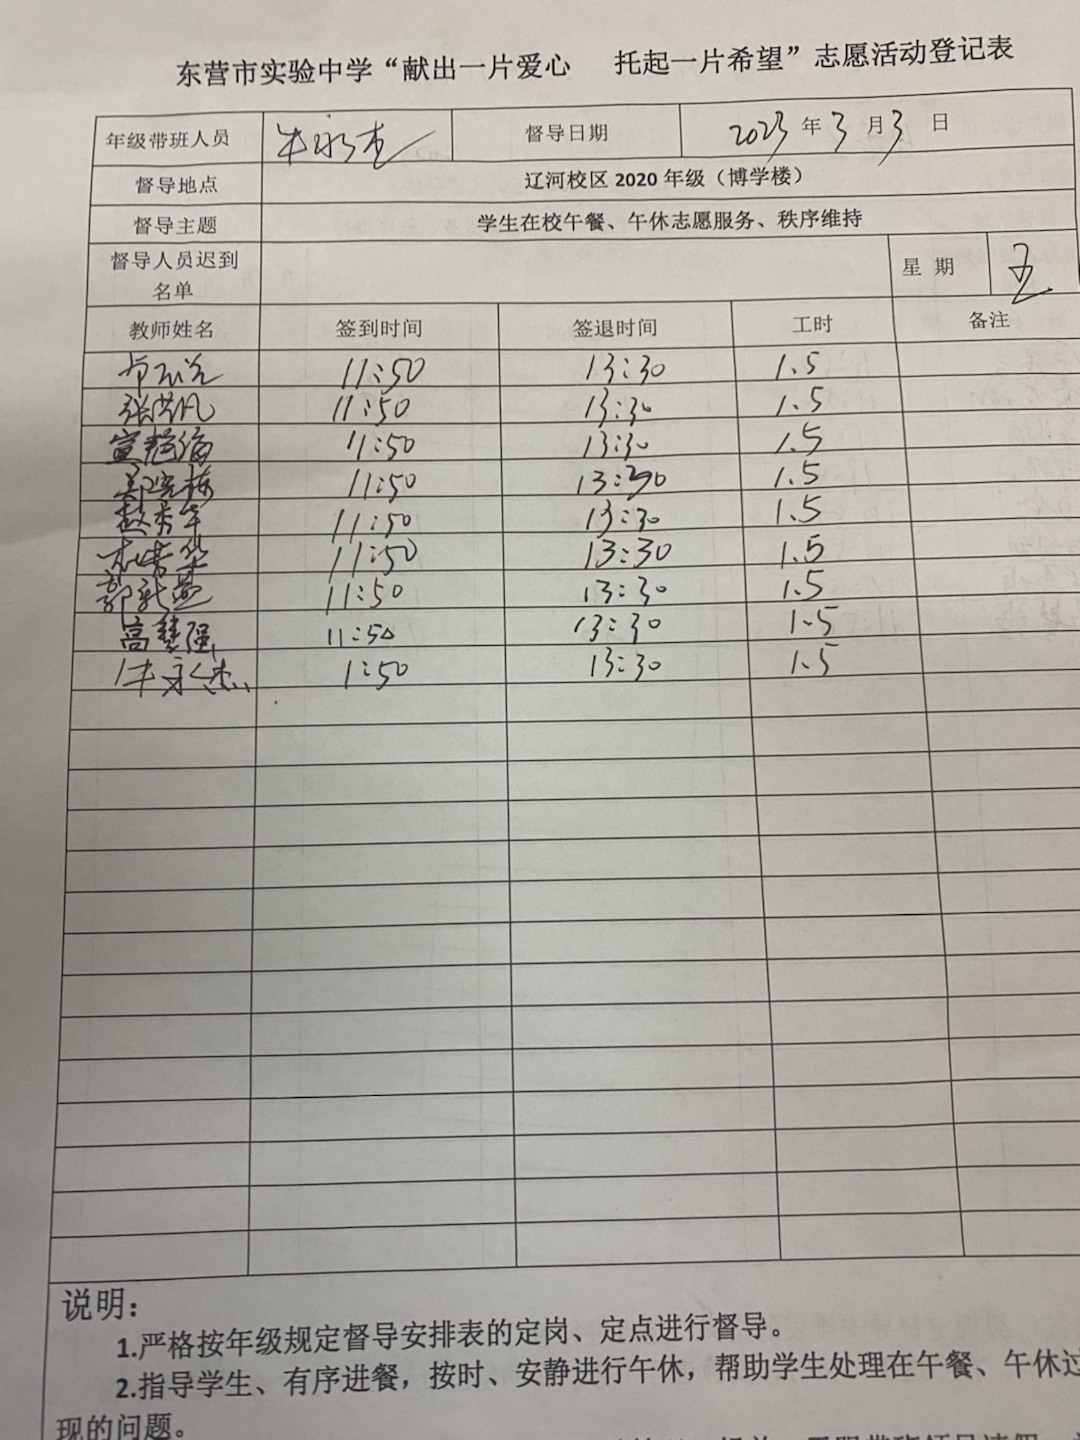 东营市实验中学“献出一片爱心 托起一片希望”志愿活动登记表
年级带班人员 牛永杰 督导日期 2023年3月3日
督导地点 辽河校区2020年级（博学楼）
督导主题 学生在校午餐、午休志愿服务、秩序维持
督导人员迟到名单 星期 五
教师姓名 签到时间 签退时间 工时 备注
11:50 13:30 1.5
张 11:50 13:30 1.5
11:50 13:30 1.5
郑晓栋 11:50 13:30 1.5
赵秀军 11:50 13:30 1.5
11:50 13:30 1.5
郭新燕 11:50 13:30 1.5
高慧强 11:50 13:30 1.5
牛永杰 1:50 13:30 1.5
说明：
1.严格按年级规定督导安排表的定岗、定点进行督导。
2.指导学生、有序进餐，按时、安静进行午休，帮助学生处理在午餐、午休过
现的问题。